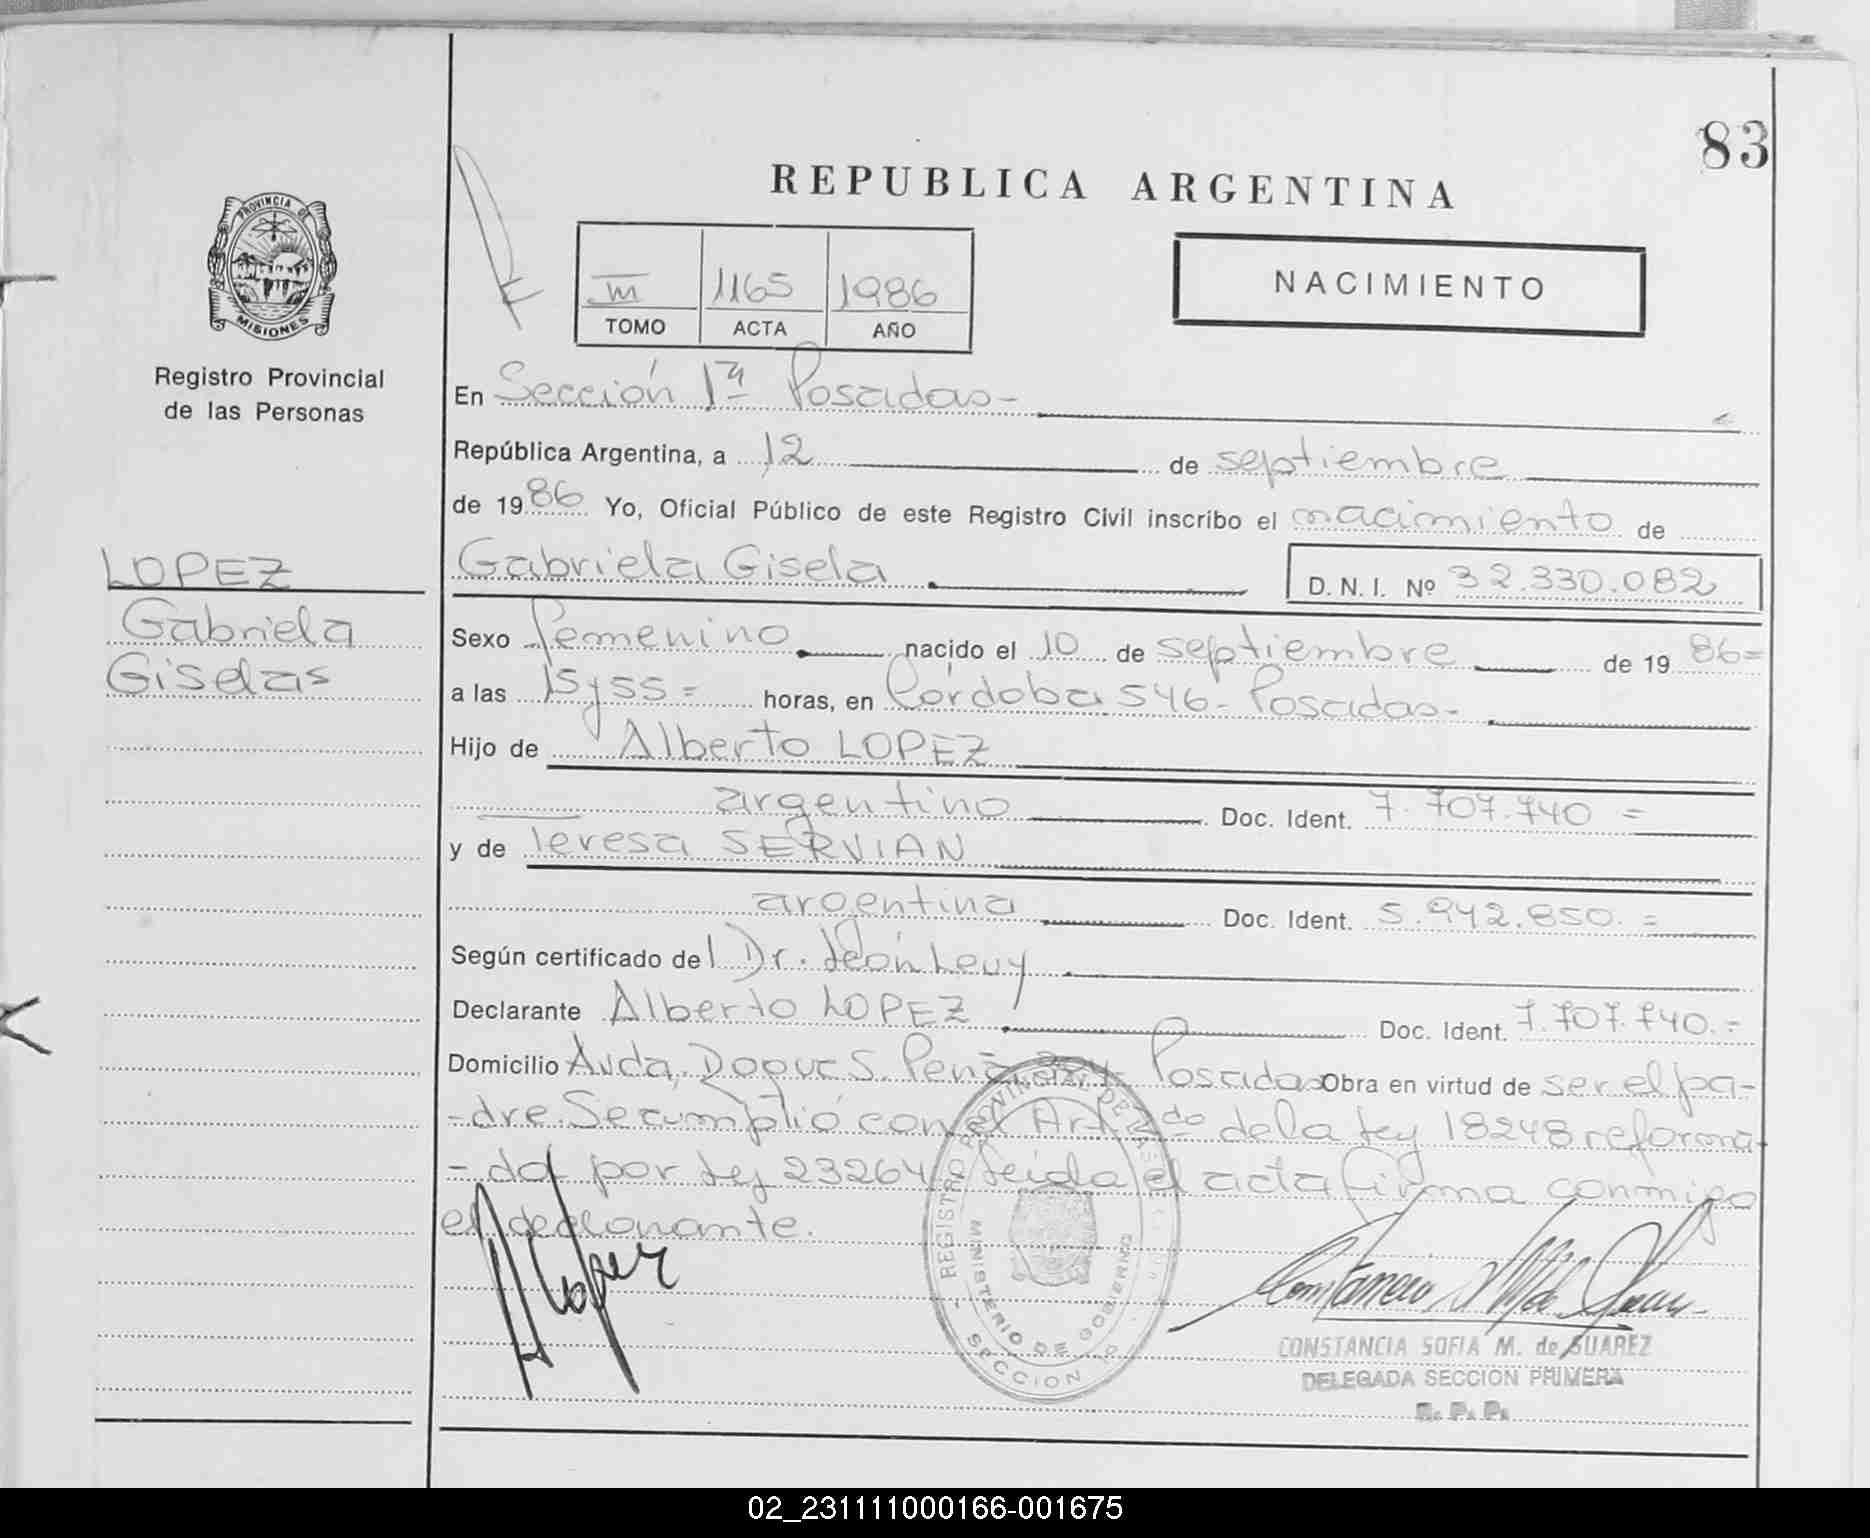 83
REPUBLICA ARGENTINA
PROVINCIA DE
MISIONES
Registro Provincial
de las Personas
III 1165 1986
TOMO ACTA AÑO
NACIMIENTO
En Sección 1ª Posadas-
República Argentina, a 12 de septiembre
de 1986 Yo, Oficial Público de este Registro Civil inscribo el nacimiento de
LOPEZ
Gabriela
Giselas
Gabriela Gisela D. N. I. Nº 32.330.082
Sexo Femenino nacido el 10 de septiembre de 19 86=
a las 15y55= horas, en Córdoba 546- Posadas-
Hijo de Alberto LOPEZ
argentino Doc. Ident. 7.707.740=
y de Teresa SERVIAN
argentina Doc. Ident. 5.942.850.=
Según certificado del Dr. León Levy
Declarante Alberto LOPEZ Doc. Ident. 7.707.740.=
Domicilio Avda. Roque S. Peña Posadas Obra en virtud de ser el pa-
-dre. Se cumplió con el Art. 2do de la Ley 18248 reforma-
-da por Ley 23264 leida el acta firma conmigo
el declarante.
A Lopez
REGISTRO PROVINCIAL DE LAS
MINISTERIO DE GOBIERNO
SECCION
CONSTANCIA SOFIA M. de SUAREZ
DELEGADA SECCION PRIMERA
R. P. P.
02_231111000166-001675